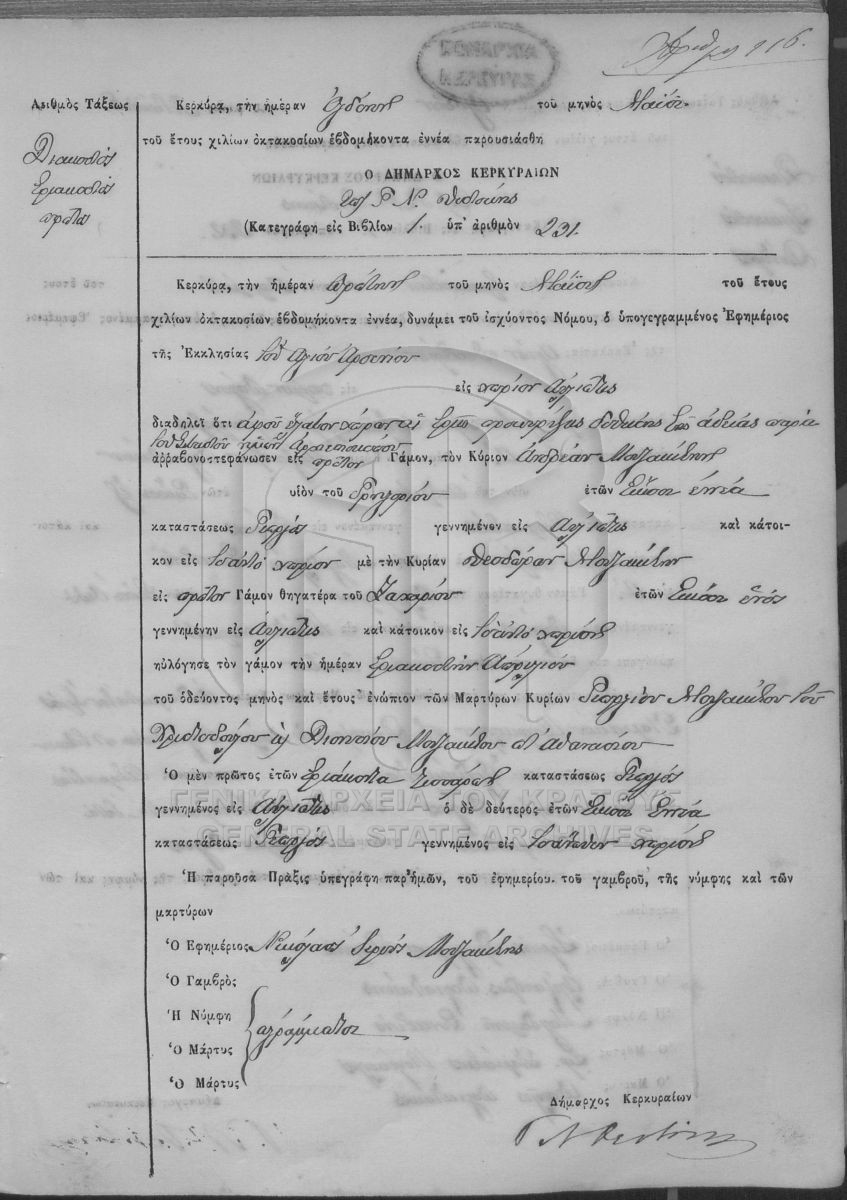 Ἀριθμ 116.
Ἀριθμὸς Τάξεως
Διακοσιὰς
τριακοστὰς
πρῶτος
Κερκύρᾳ, τὴν ἡμέραν ὀγδόην τοῦ μηνὸς Μαΐου
τοῦ ἔτους χιλίων ὀκτακοσίων ἑβδομήκοντα ἐννέα παρουσιάσθη
Ο ΔΗΜΑΡΧΟΣ ΚΕΡΚΥΡΑΙΩΝ
(Κατεγράφη εἰς Βιβλίον 1. ὑπ' ἀριθμὸν 231.
Κερκύρᾳ, τὴν ἡμέραν πρώτην τοῦ μηνὸς Μαΐου τοῦ ἔτους
χιλίων ὀκτακοσίων ἑβδομήκοντα ἐννέα, δυνάμει τοῦ ἰσχύοντος Νόμου, ὁ ὑπογεγραμμένος Ἐφημέριος
τῆς Ἐκκλησίας τοῦ Ἁγίου Ἀρσενίου
εἰς χωρίον Αὐλιῶτες
διαδηλεῖ ὅτι ἀφοῦ ἔλαβον χώραν αἱ τρεῖς προκηρύξεις δοθείσης τῆς ἀδείας παρὰ
τοῦ Σεβαστοῦ ἡμῶν Ἀρχιεπισκόπου
ἀῤῥαβονοστεφάνωσεν εἰς πρῶτον Γάμον, τὸν Κύριον Ἀνδρέαν Μουζακίτην
υἱὸν τοῦ ἐτῶν Εἴκοσι ἐννέα
καταστάσεως Γεωργὸς γεννημένον εἰς Αὐλιῶτες καὶ κάτοι-
κον εἰς τὸ αὐτὸ χωρίον μὲ τὴν Κυρίαν Θεοδώραν Μουζακίτην
εἰς πρῶτον Γάμον θηγατέρα τοῦ Ζαχαρίου ἐτῶν Εἴκοσι ἑνὸς
γεννημένην εἰς Αὐλιῶτες καὶ κάτοικον εἰς τὸ αὐτὸ χωρίον
ηὐλόγησε τὸν γάμον τὴν ἡμέραν τριακοστὴν Ἀπριλίου
τοῦ ὁδεύοντος μηνὸς καὶ ἔτους ἐνώπιον τῶν Μαρτύρων Κυρίων Γεωργίου Μουζακίτου τοῦ
Χριστοδούλου καὶ Διονυσίου Μουζακίτου τοῦ Ἀθανασίου
Ὁ μὲν πρῶτος ἐτῶν τριάκοντα τεσσάρων καταστάσεως Γεωργὸς
γεννημένος εἰς Αὐλιῶτες ὁ δὲ δεύτερος ἐτῶν Εἴκοσι Ἐννέα
καταστάσεως Γεωργὸς γεννημένος εἰς τὸ αὐτὸ χωρίον
Ἡ παροῦσα Πρᾶξις ὑπεγράφη παρ' ἡμῶν, τοῦ ἐφημερίου, τοῦ γαμβροῦ, τῆς νύμφης καὶ τῶν
μαρτύρων
Ὁ Ἐφημέριος Νικόλαος Ἱερεὺς Μουζακίτης
Ὁ Γαμβρὸς
Ἡ Νύμφη
ἀγράμματοι
Ὁ Μάρτυς
Ὁ Μάρτυς
Δήμαρχος Κερκυραίων
ΓΕΝΙΚΑ ΑΡΧΕΙΑ ΤΟΥ ΚΡΑΤΟΥΣ
GENERAL STATE ARCHIVES